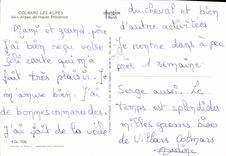 COLMARS LES ALPES
04 - Alpes de Haute Provence
Mami et grand-père
J'ai bien reçu votre
Joli carte qui m'a
fait très plaisir. Je
m'amuse bien. J'ai
de bonnes camarades
J'ai fait de la voile
FG. 106
du cheval et bien
d'autre activitées
Je rentre dans à peu
près 1 semaine.
Serge aussi. Le
temps est splendides
milles grosses bises
de Villars Colmars